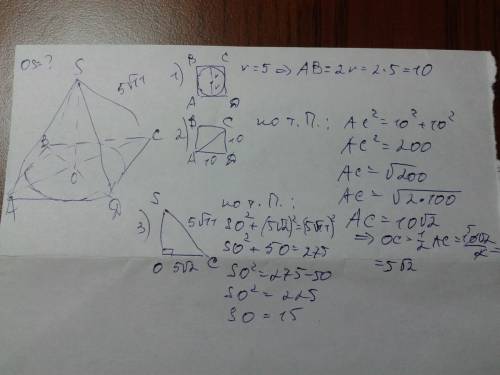 OS - ?
S
5√11
B
C
O
A
D
1)
B C
A D
r=5 ⇒ AB=2r=2·5=10
2)
B C
10
A 10 D
по т. П.:
AC²=10²+10²
AC²=200
AC=√200
AC=√2·100
AC=10√2
⇒ OC=½AC=10√2/2=
=5√2
3)
S
5√11
O 5√2 C
по т. П.:
SO²+(5√2)²=(5√11)²
SO²+50=275
SO²=275-50
SO²=225
SO=15